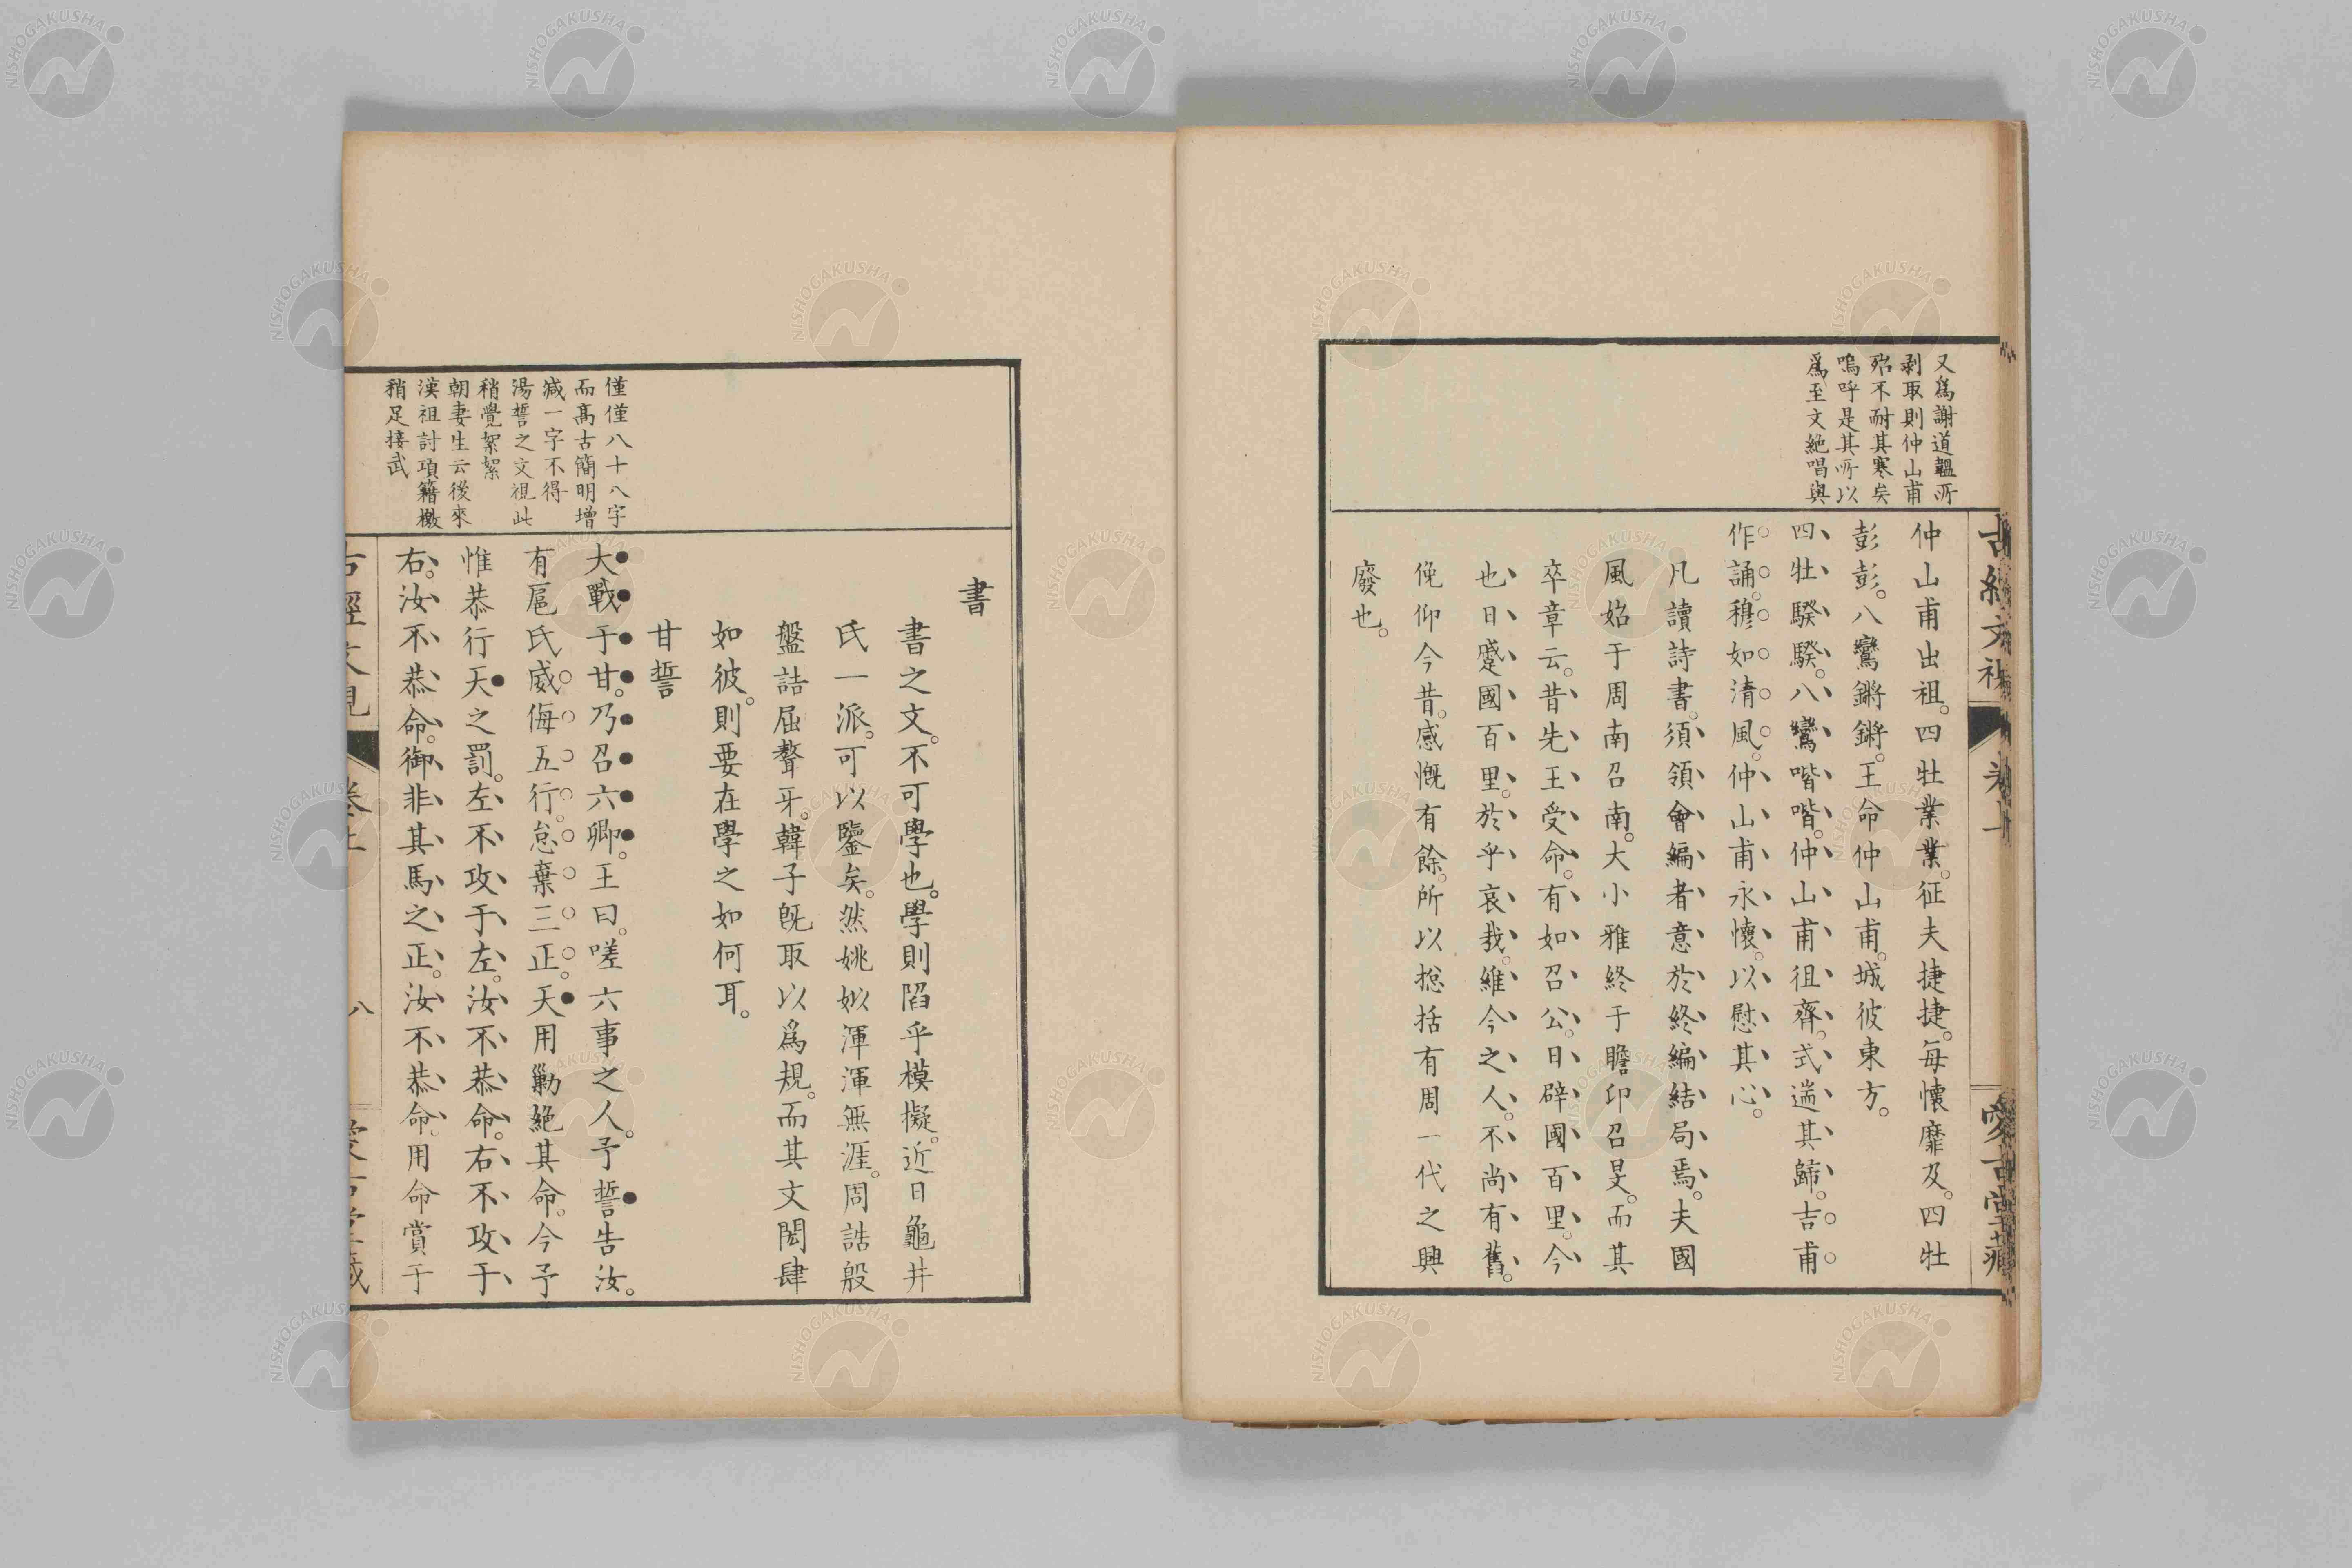 又爲謝道韞所
剥取則仲山甫
殆不耐其寒矣
嗚呼是其所以
爲至文絶唱與
仲山甫出祖。四牡業業。征夫捷捷。每懷靡及。四牡
彭彭。八鸞鏘鏘。王命仲山甫。城彼東方。
四牡騤騤。八鸞喈喈。仲山甫徂齊。式遄其歸。吉甫
作誦。穆如清風。仲山甫永懷。以慰其心。
凡讀詩書。須領會編者意於終編結局焉。夫國
風始于周南召南。大小雅終于瞻卬召旻。而其
卒章云。昔先王受命。有如召公。日辟國百里。今
也日蹙國百里。於乎哀哉。維今之人。不尚有舊。
俛仰今昔。感慨有餘。所以捴括有周一代之興
廢也。
書
書之文。不可學也。學則陷乎模擬。近日龜井
氏一派。可以鑒矣。然姚姒渾渾無涯。周誥殷
盤詰屈聱牙。韓子既取以爲規。而其文閎肆
如彼。則要在學之如何耳。
甘誓
僅僅八十八字
而髙古簡明增
減一字不得
湯誓之文視此
稍覺絮絮
朝妻生云後來
漢祖討項籍檄
稍足接武
大戰于甘。乃召六卿。王曰。嗟六事之人。予誓告汝。
有扈氏威侮五行。怠棄三正。天用勦絶其命。今予
惟恭行天之罰。左不攻于左。汝不恭命。右不攻于
右。汝不恭命。御非其馬之正。汝不恭命。用命賞于
八
NISHOGAKUSHA